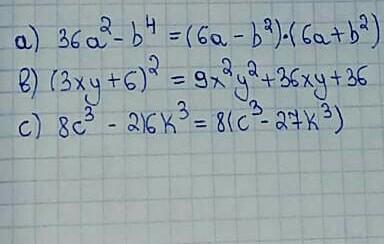 a) 36a² - b⁴ = (6a - b²)·(6a + b²)
b) (3xy + 6)² = 9x²y² + 36xy + 36
c) 8c³ - 216k³ = 8(c³ - 27k³)